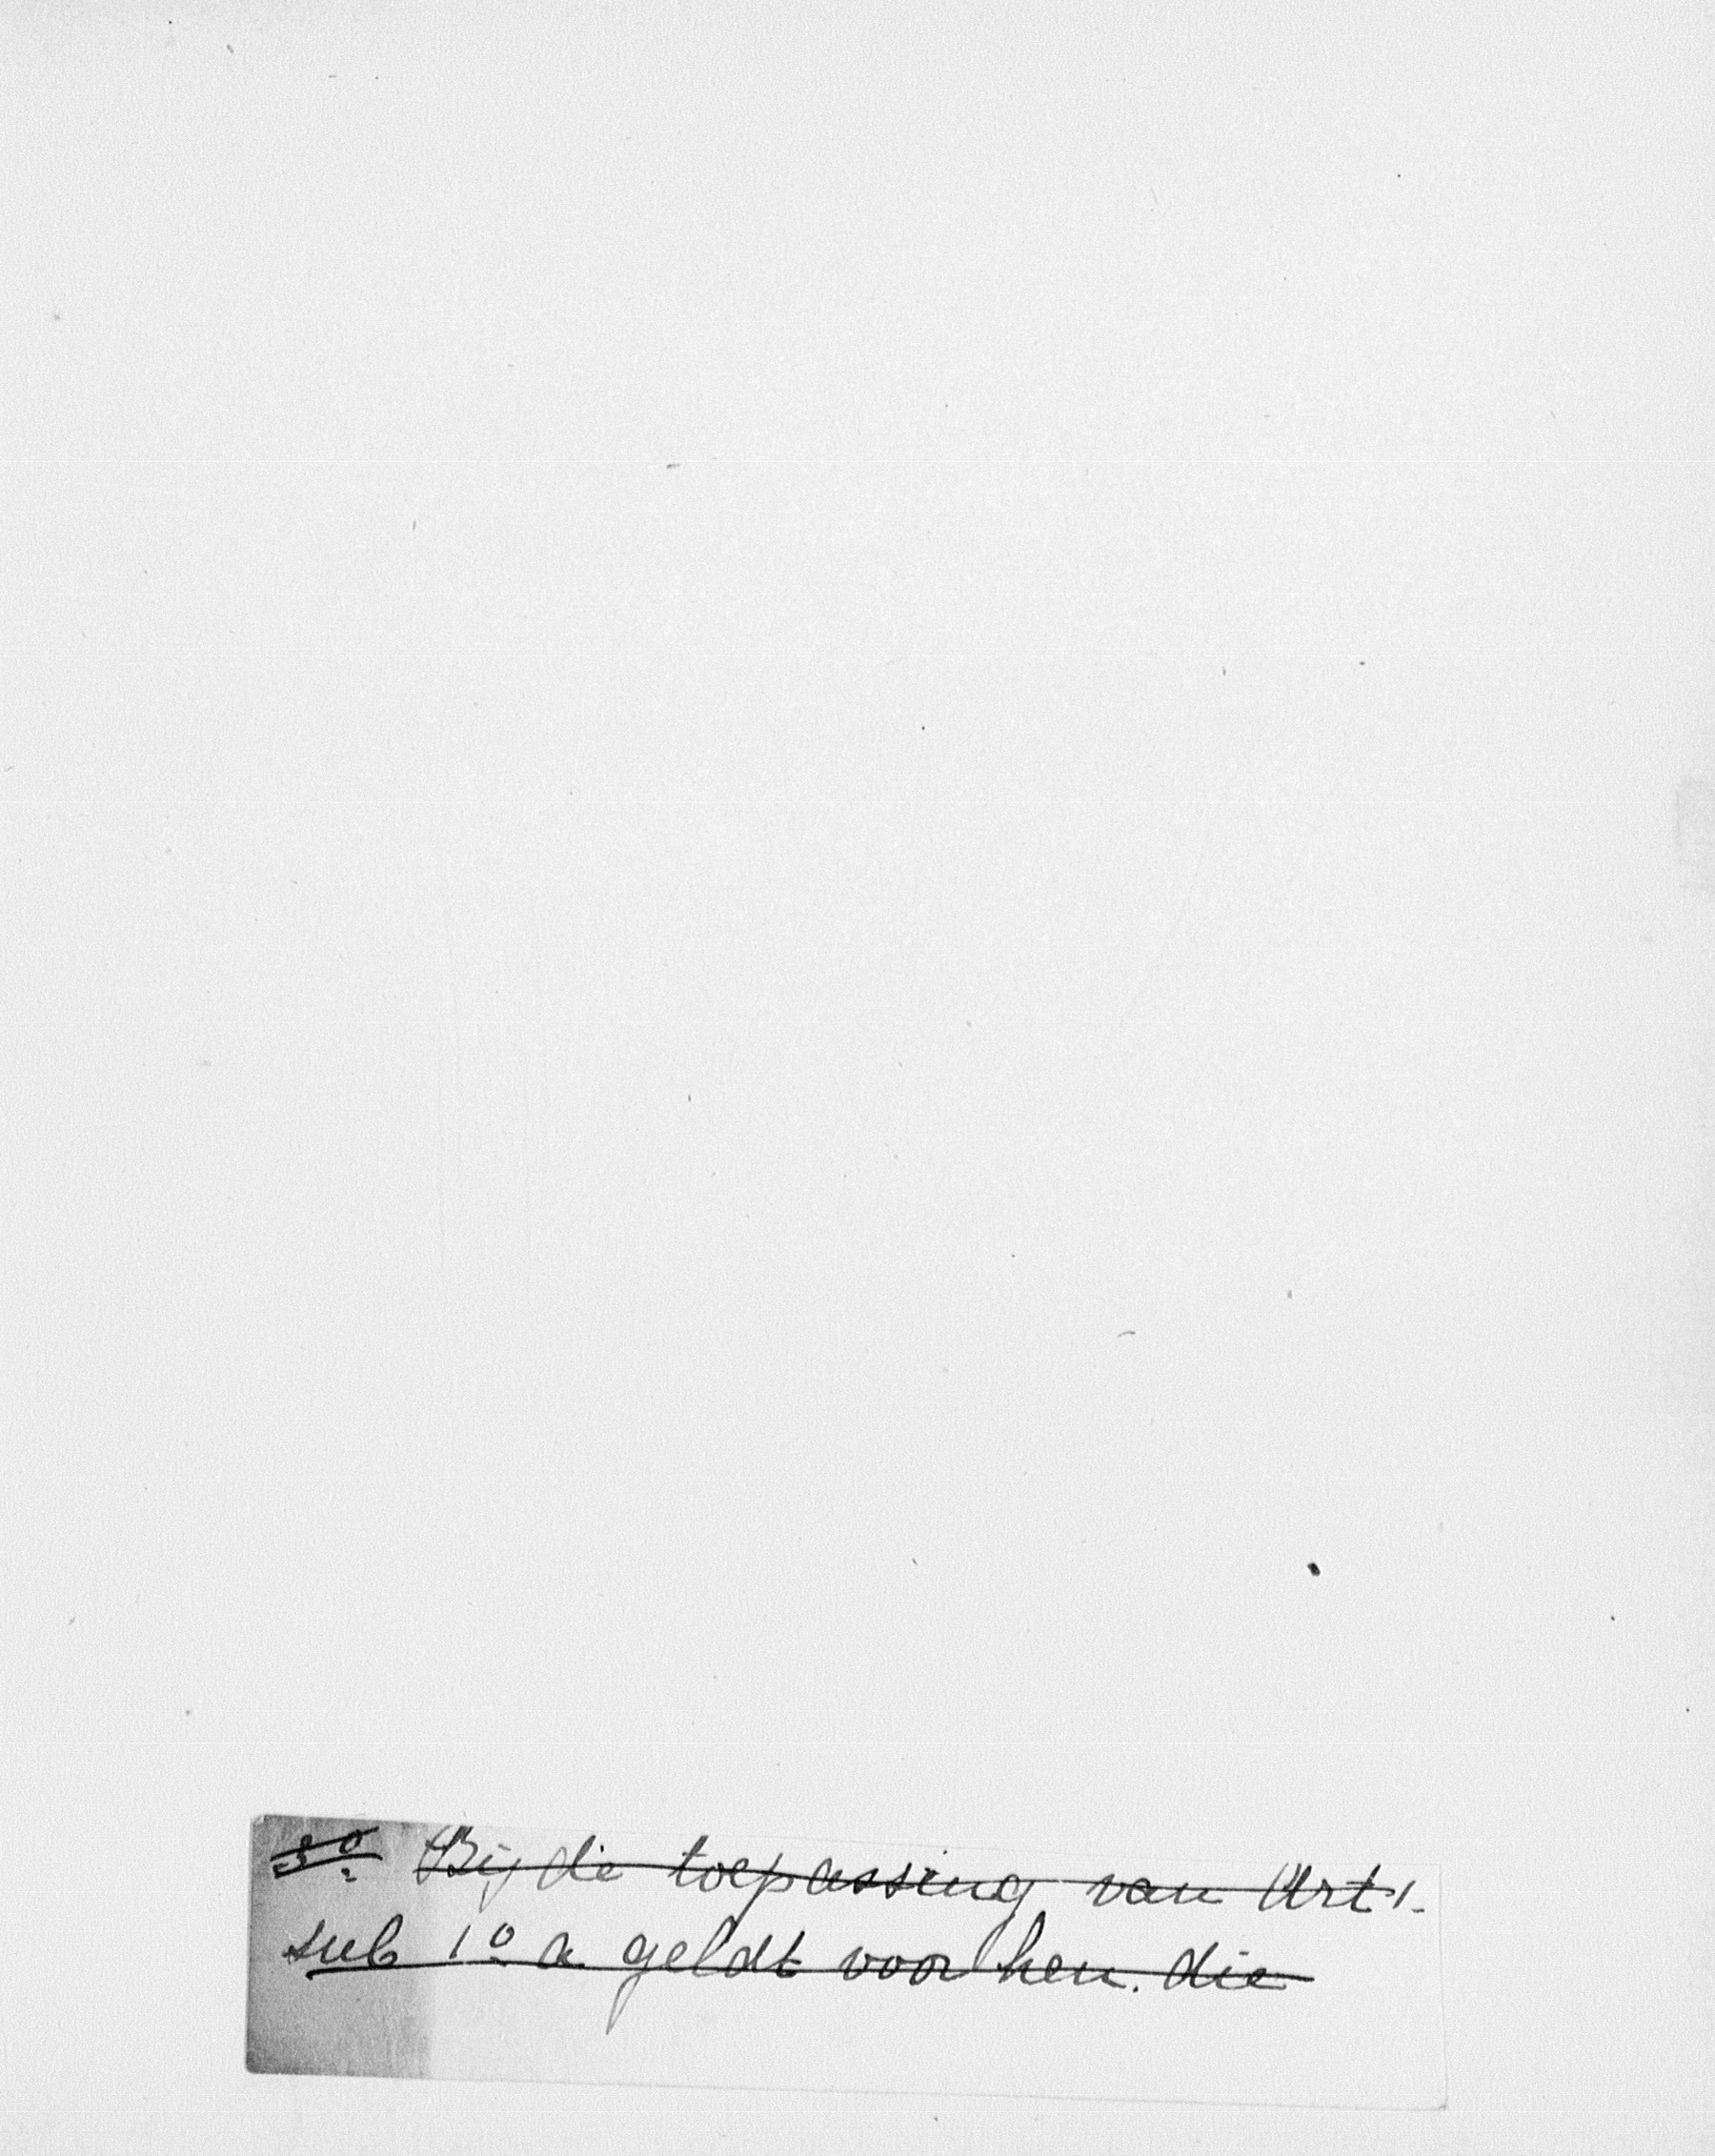 3º Bij de toepassing van Art 1.
sub 1º a geldt voor hen. die